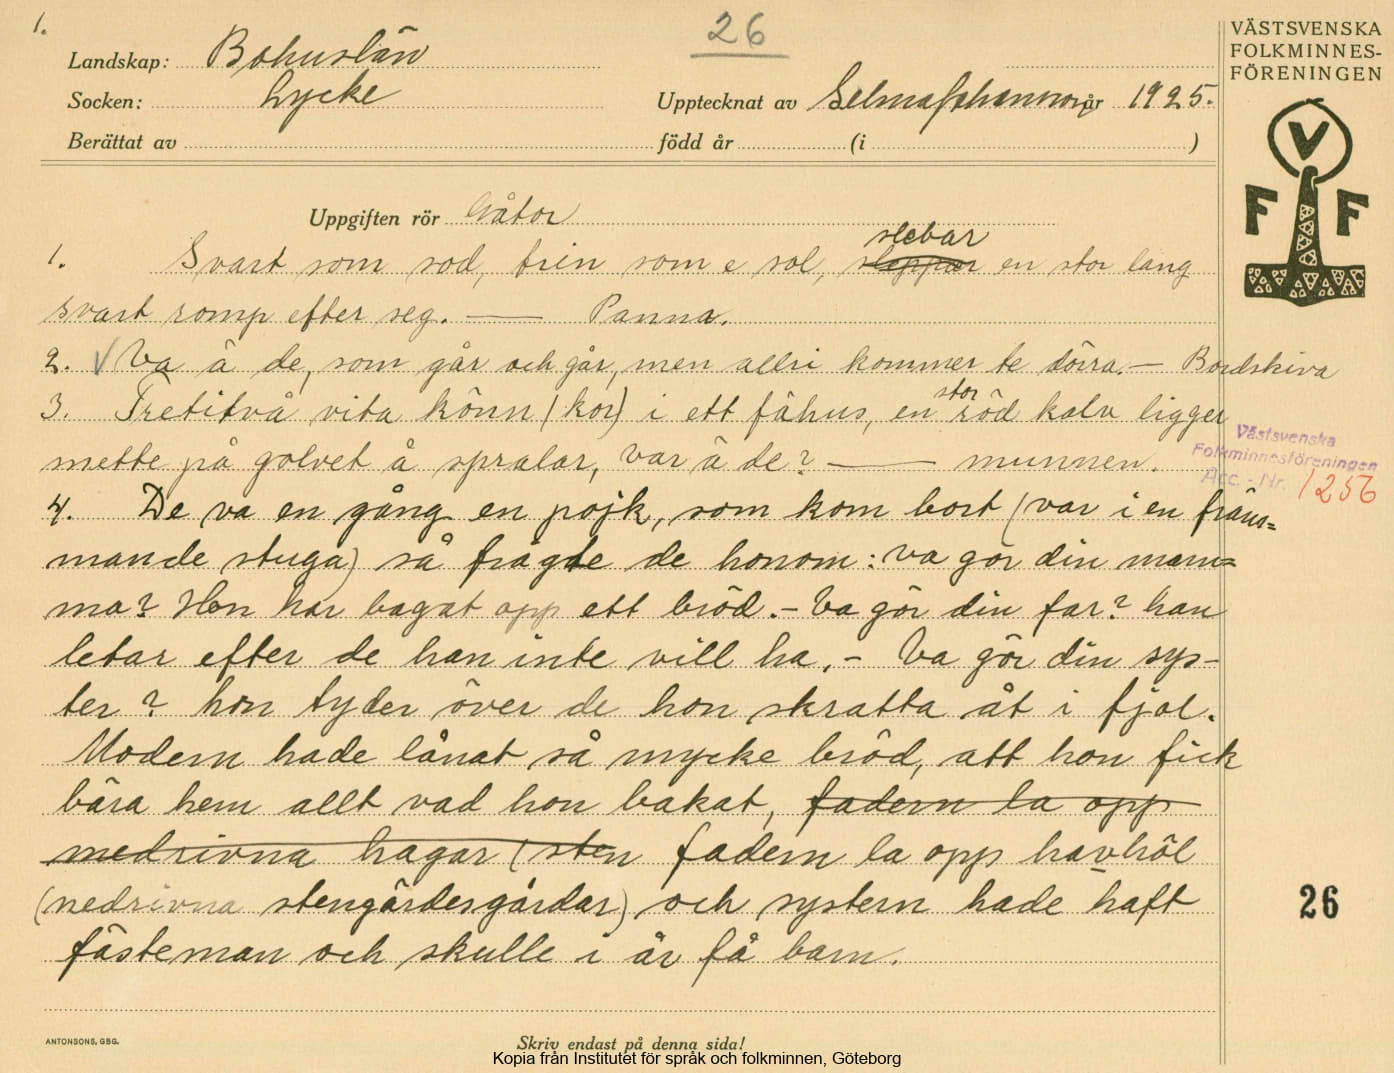 1.
26
VÄSTSVENSKA
FOLKMINNES-
FÖRENINGEN
Landskap: Bohuslän
Socken: Lycke
Upptecknat av Selma Johansson år 1925.
Berättat av född år (i )
V
F F
Uppgiften rör Gåtor
slebar
1. Svart som sod, trin som e sol, slappar en stor lang
svart romp efter seg. — Panna.
2. V Va ä de, som går och går, men allri kommer te dörra. — Bordskiva
stor
3. Tretitvå vita könn (kor) i ett fähus, en röd kalv ligger
mette på golvet å spralar, Var ä de? — munnen.
Västsvenska
Folkminnesföreningen
Acc.-Nr. 1256
4. De va en gång en pojk, som kom bort (var i en främ=
mande stuga) så frågte de honom: va gör din mam=
ma? Hon har bagat opp ett bröd. – Va gör din far? han
letar efter de han inte vill ha. – Va gör din sys-
ter? hon tyder över de hon skratta åt i fjol.
Modern hade lånat så mycke bröd, att hon fick
bära hem allt vad hon bakat, fadern la opp
medrivna hagar (sten fadern la opp havhöl
(nedrivna stengärdesgårdar) och systern hade haft
fästeman och skulle i år få barn.
26
ANTONSONS, GBG.
Skriv endast på denna sida!
Kopia från Institutet för språk och folkminnen, Göteborg